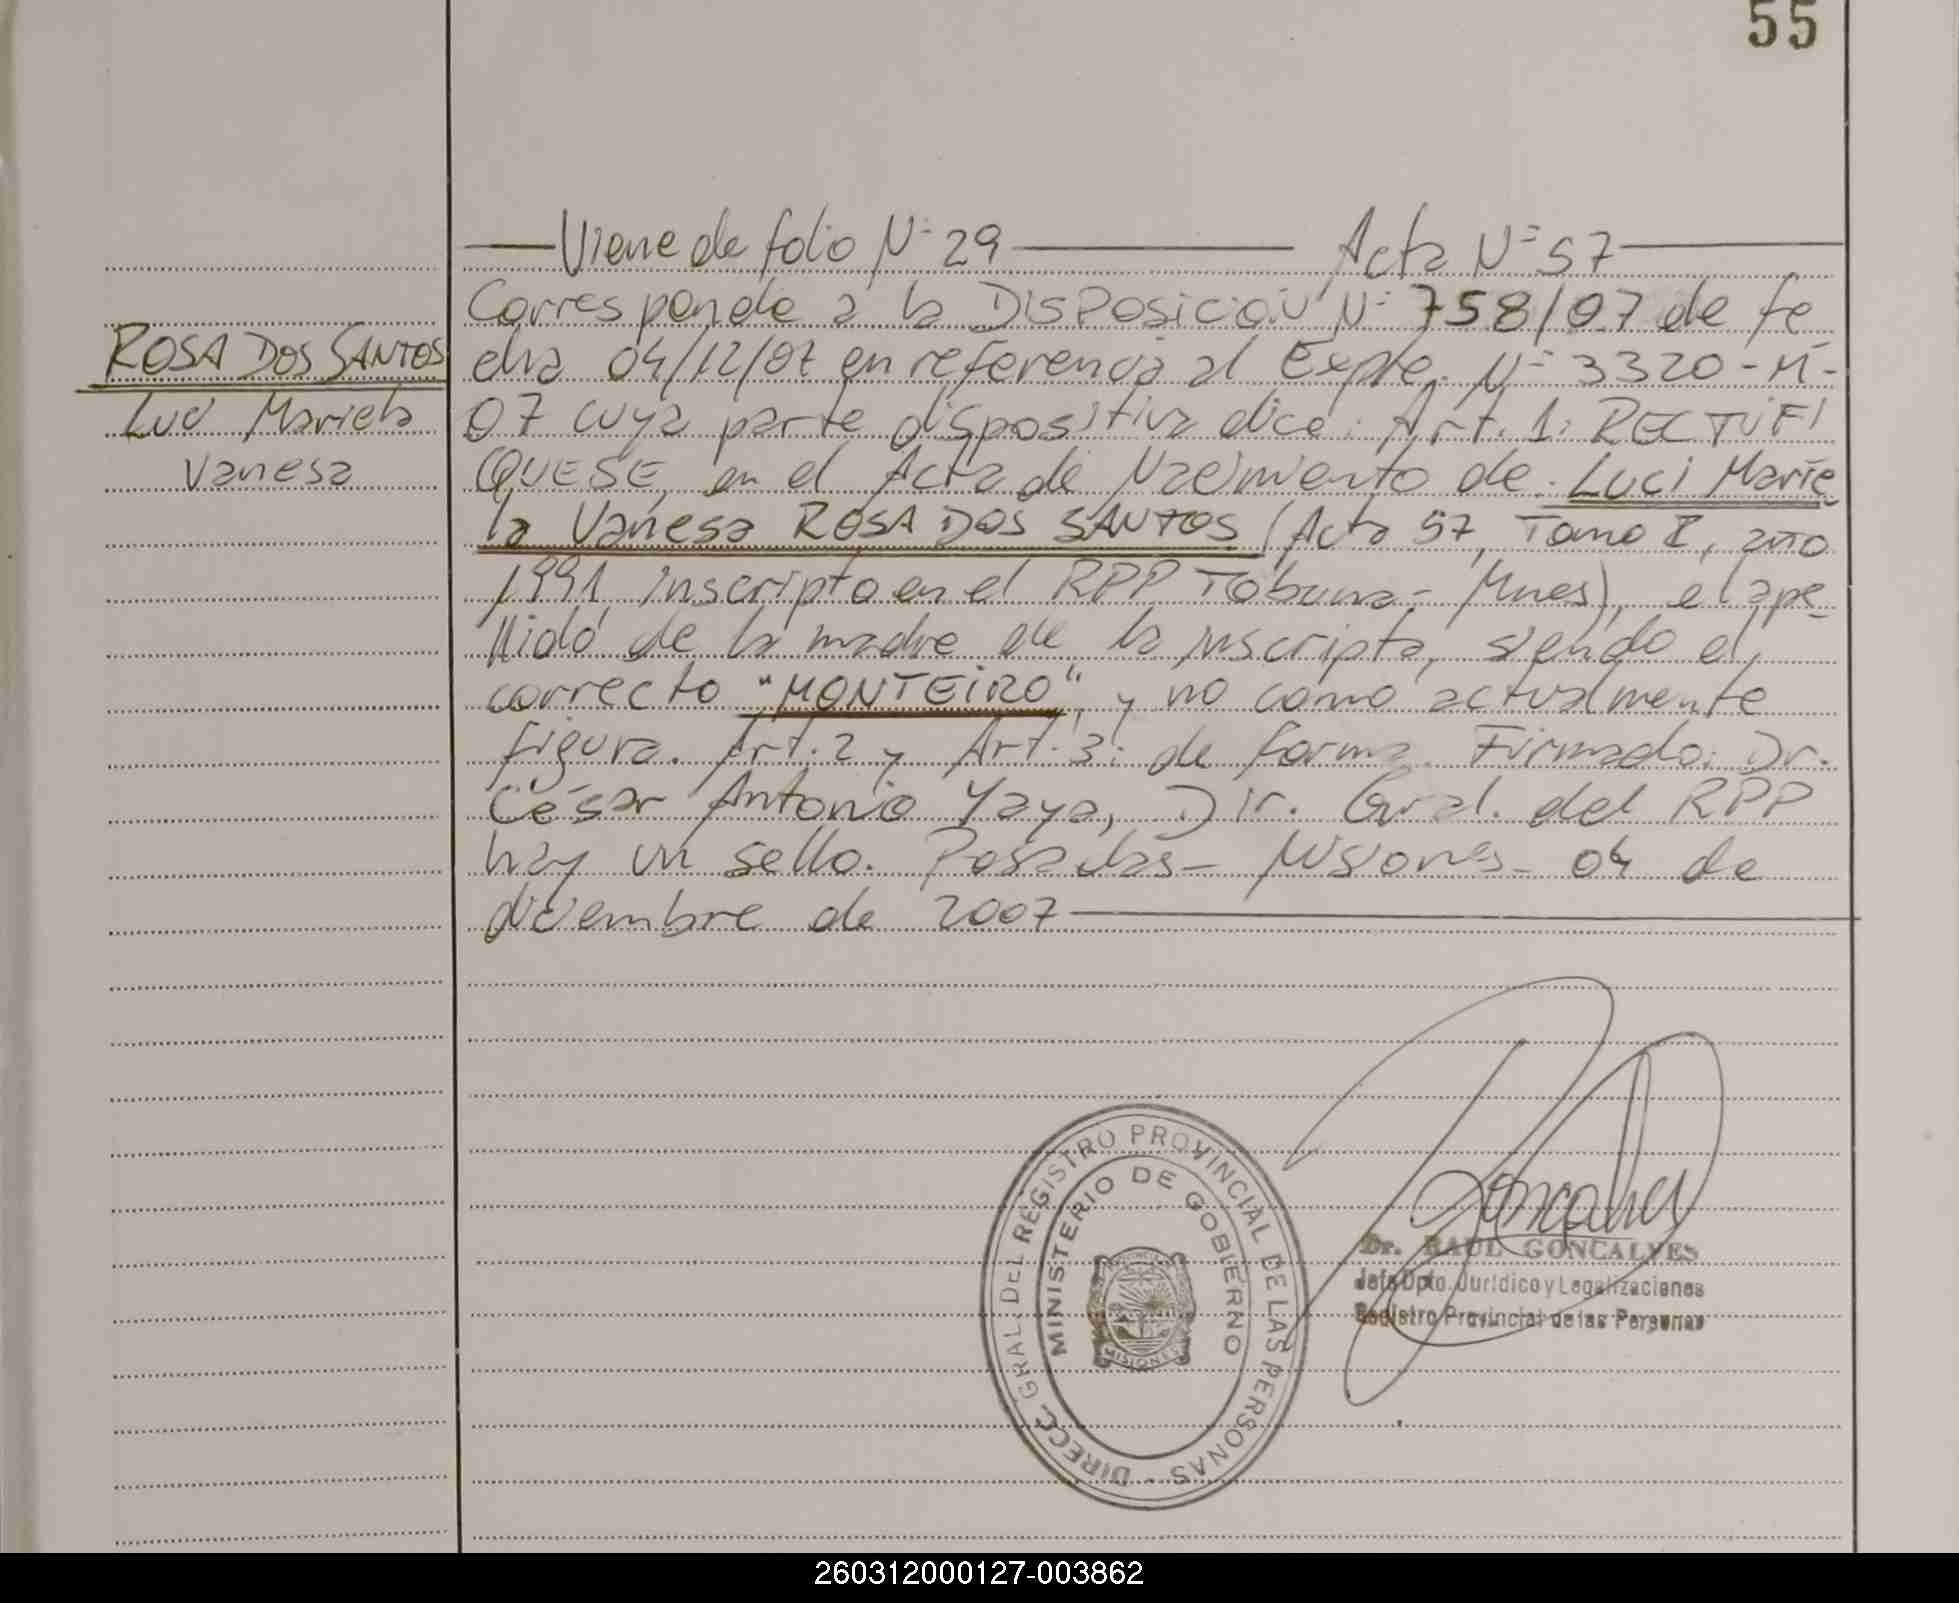 55
Viene de folio N° 29 Acta N° 57
Corresponde a la DISPOSICIÓN N° 758/07 de fe
ROSA DOS SANTOS
cha 04/12/07 en referencia al Expte. N° 3320-M-
Luci Mariela
07 cuya parte dispositiva dice: Art. 1: RECTIFI
Vanesa
QUESE, en el Acta de Nacimiento de Luci Marie
la Vanesa ROSA DOS SANTOS (Acta 57, Tomo I, año
1991, inscripto en el RPP Tobuna- Mnes), el ape
llido de la madre de la inscripta, siendo el
correcto "MONTEIRO", y no como actualmente
figura. Art. 2 y Art. 3: de forma. Firmado: Dr.
César Antonio Yaya, Dir. Gral. del RPP
hay un sello. Posadas- Misiones- 04 de
diciembre de 2007
DIRECC. GRAL. DEL REGISTRO PROVINCIAL DE LAS PERSONAS
MINISTERIO DE GOBIERNO
MISIONES
Dr. RAUL GONCALVES
Jefe Dpto. Jurídico y Legalizaciones
Registro Provincial de las Personas
260312000127-003862